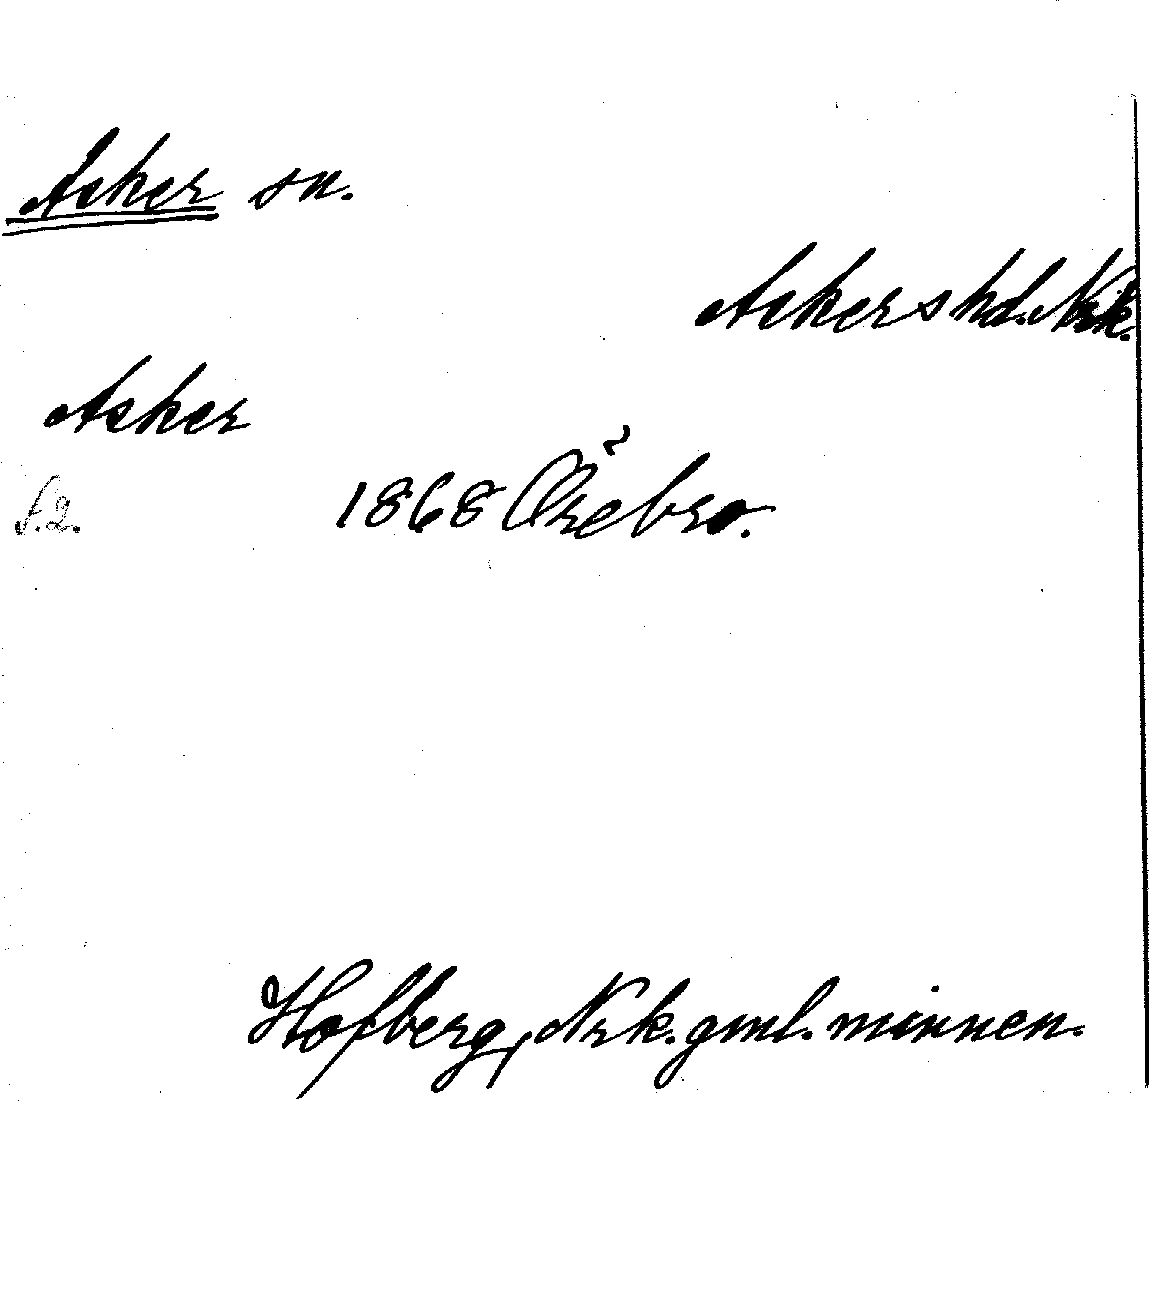 Asker sn.
Askers hd. Nrk.
Asker
s. 2. 1868 Örebro.
Hofberg, Nrk. gml. minnen.